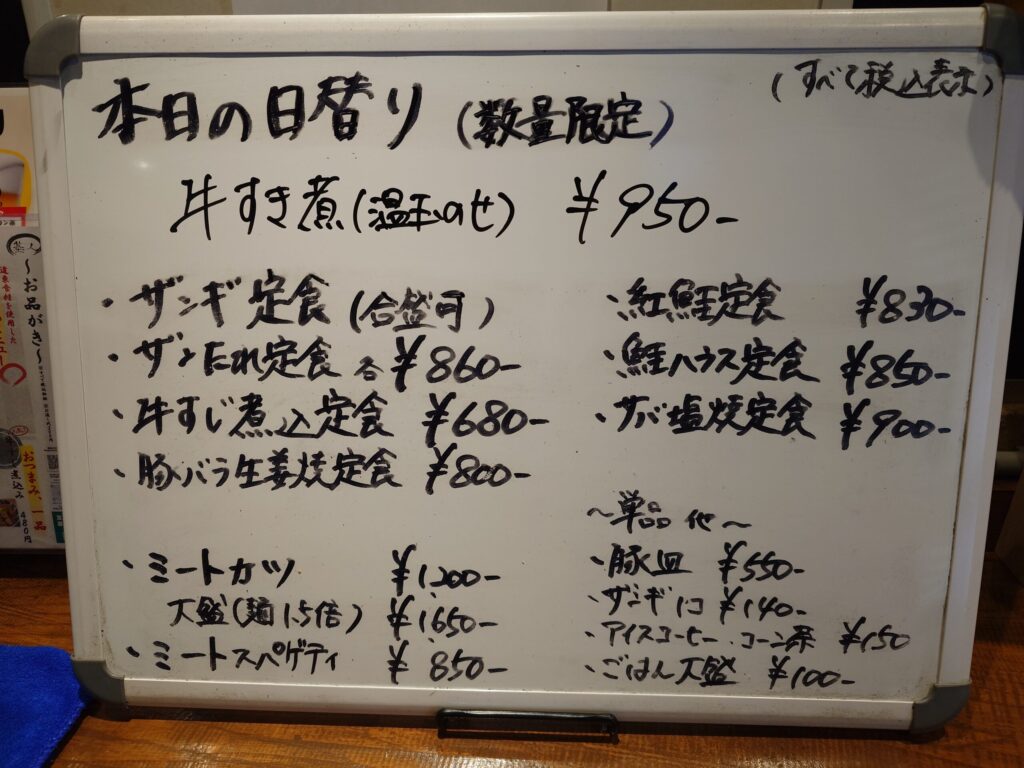 (すべて税込表示)
本日の日替り (数量限定)
牛すき煮(温玉のせ) ¥950-
・ザンギ定食 (合盛可)
・ザンたれ定食 各 ¥860-
・牛すじ煮込定食 ¥680-
・豚バラ生姜焼定食 ¥800-
・ミートカツ ¥1,200-
大盛(麺1.5倍) ¥1,650-
・ミートスパゲティ ¥850-
・紅鮭定食 ¥830-
・鮭ハラス定食 ¥850-
・サバ塩焼定食 ¥900-
〜単品 他〜
・豚皿 ¥550-
・ザンギ1コ ¥140-
・アイスコーヒー・コーン茶 ¥150
・ごはん大盛 ¥100-
〜お品がき〜
おつまみ、一品
煮込み
480円